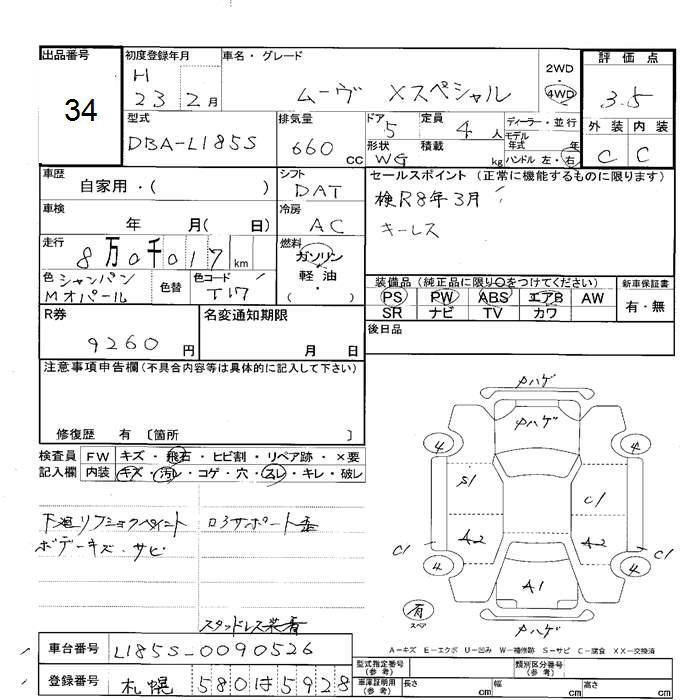 出品番号
34
初度登録年月
H
23 2月
車名・グレード
ムーヴ Xスペシャル
2WD
・
4WD
評価点
3.5
外装 内装
C C
型式
DBA-L185S
排気量
660 cc
ドア
5
定員
4 人
形状
WG
積載
kg
ディーラー・並行
モデル
年式 年
ハンドル 左・右
車歴
自家用・( )
シフト
DAT
車検
年 月( 日)
冷房
AC
走行
8万0千017 km
燃料
ガソリン
軽油
・
( )
色 シャンパン
Mオパール
色替
色コード
T17
セールスポイント (正常に機能するものに限ります)
検R8年3月
キーレス
装備品 (純正品に限り○をつけてください)
PS PW ABS エアB AW
SR ナビ TV カワ
新車保証書
有・無
R券
9260 円
名変通知期限
月 日
後日品
注意事項申告欄(不具合内容等は具体的に記入して下さい)
修復歴 有 〔箇所 〕
検査員
記入欄
FW キズ・飛石・ヒビ割・リペア跡・×要
内装 キズ・汚れ・コゲ・穴・スレ・キレ・破レ
下廻リ
ボデーキズ・サビ
ロアサポート歪
スタッドレス装着
車台番号
L185S-0090526
登録番号
札幌 580 は 5928
ハゲ
ハゲ
4 4
S1
C1
A2 A2
C1 C1
4 4
A1
ハゲ
有
スペア
A-キズ E-エクボ U-凹み W-補修跡 S-サビ C-腐食 XX-交換済
型式指定番号
(参考)
類別区分番号
(参考)
車庫証明用
(参考)
長さ cm
幅 cm
高さ cm